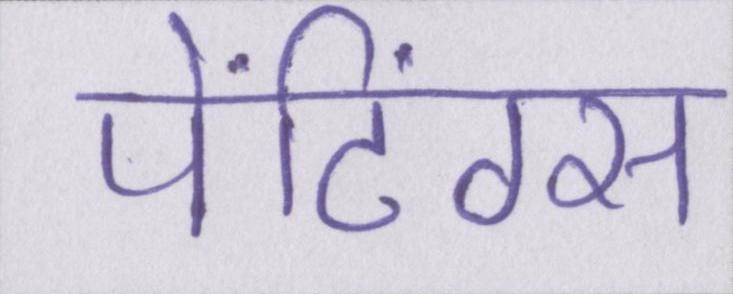 पेंटिंग्स